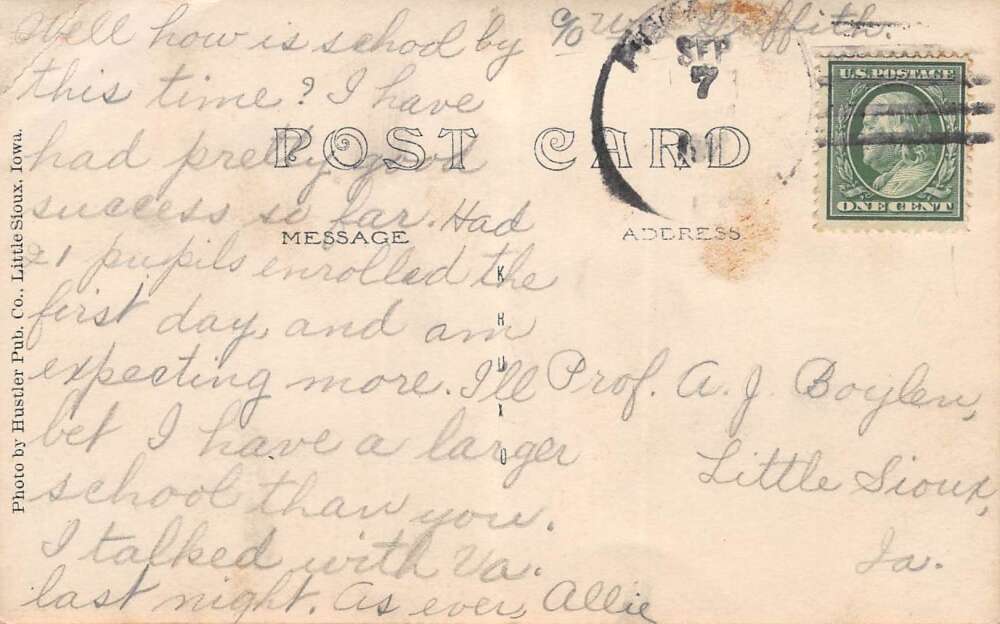 Well how is school by
this time? I have
had pretty good
success so far. Had
21 pupils enrolled the
first day, and am
expecting more. I'll
bet I have a larger
school than you.
I talked with Va.
last night. As ever, Allie
c/o Griffith.
SEP
7
U.S. POSTAGE
ONE CENT
POST CARD
MESSAGE
ADDRESS
KRUXO
Prof. A. J. Boylen,
Little Sioux,
Ia.
Photo by Hustler Pub. Co., Little Sioux, Iowa.